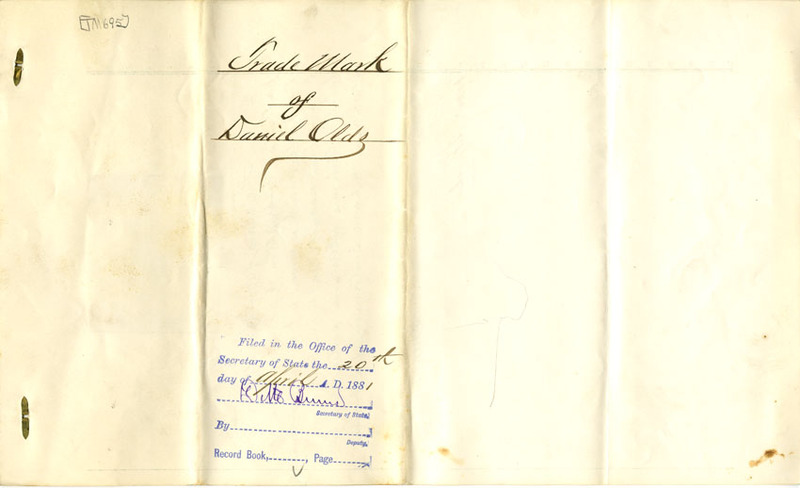 [TM695]
Trade Mark
of
Daniel Olds
Filed in the Office of the
Secretary of State the 20th
day of April A. D. 1881
Secretary of State,
By
Deputy.
Record Book, Page